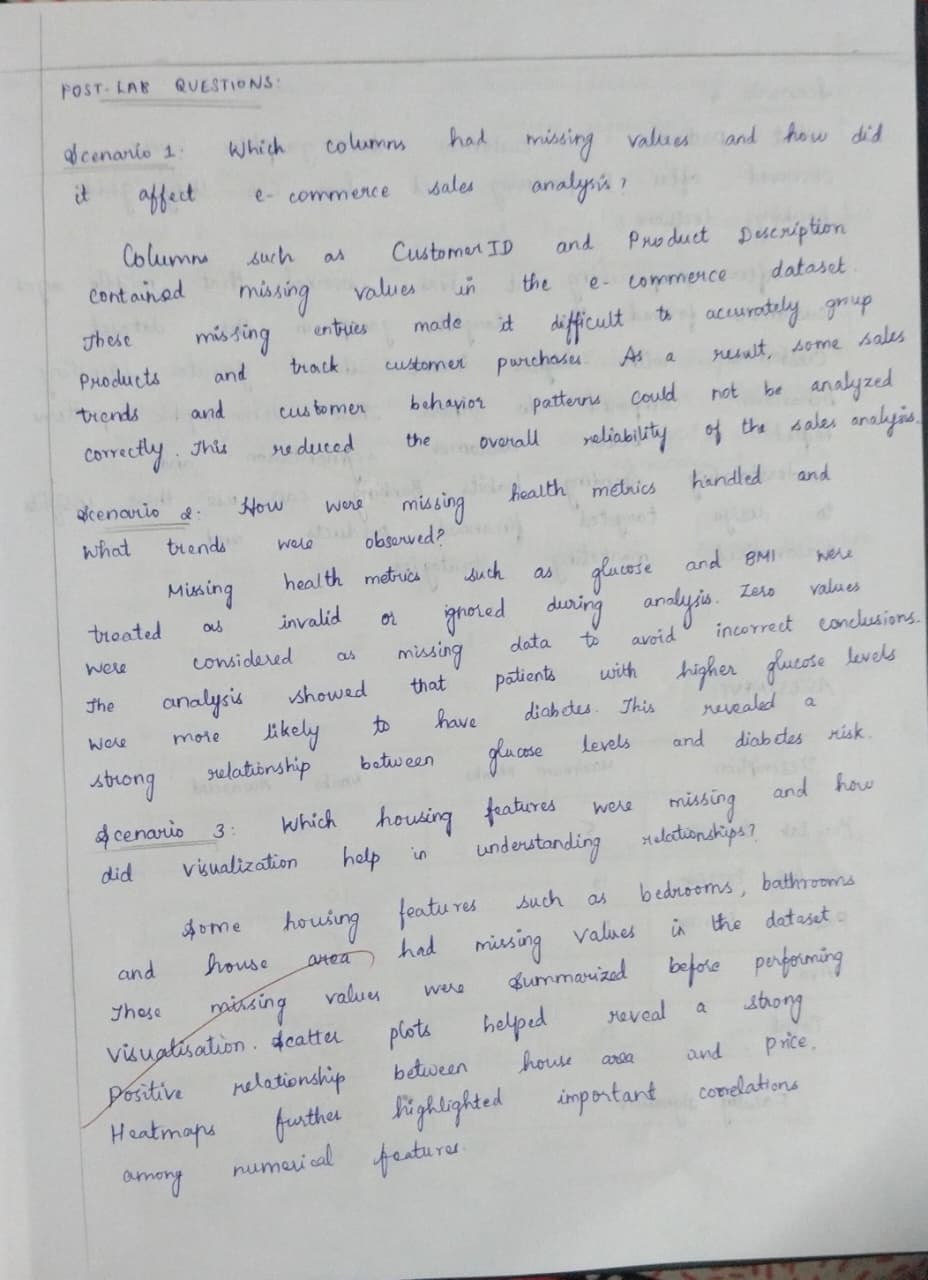 POST-LAB QUESTIONS:
Scenario 1: Which columns had missing values and how did
it affect e-commerce sales analysis?
Columns such as Customer ID and Product Description
contained missing values in the e-commerce dataset.
These missing entries made it difficult to accurately group
Products and track customer purchases. As a result, some sales
trends and customer behavior patterns could not be analyzed
correctly. This reduced the overall reliability of the sales analysis.
Scenario 2: How were missing health metrics handled and
What trends were observed?
Missing health metrics such as glucose and BMI were
treated as invalid or ignored during analysis. Zero values
were considered as missing data to avoid incorrect conclusions.
The analysis showed that patients with higher glucose levels
were more likely to have diabetes. This revealed a
strong relationship between glucose levels and diabetes risk.
Scenario 3: Which housing features were missing and how
did visualization help in understanding relationships?
Some housing features such as bedrooms, bathrooms
and house area had missing values in the dataset.
These missing values were summarized before performing
visualisation. Scatter plots helped reveal a strong
Positive relationship between house area and price.
Heatmaps further highlighted important correlations
among numerical features.